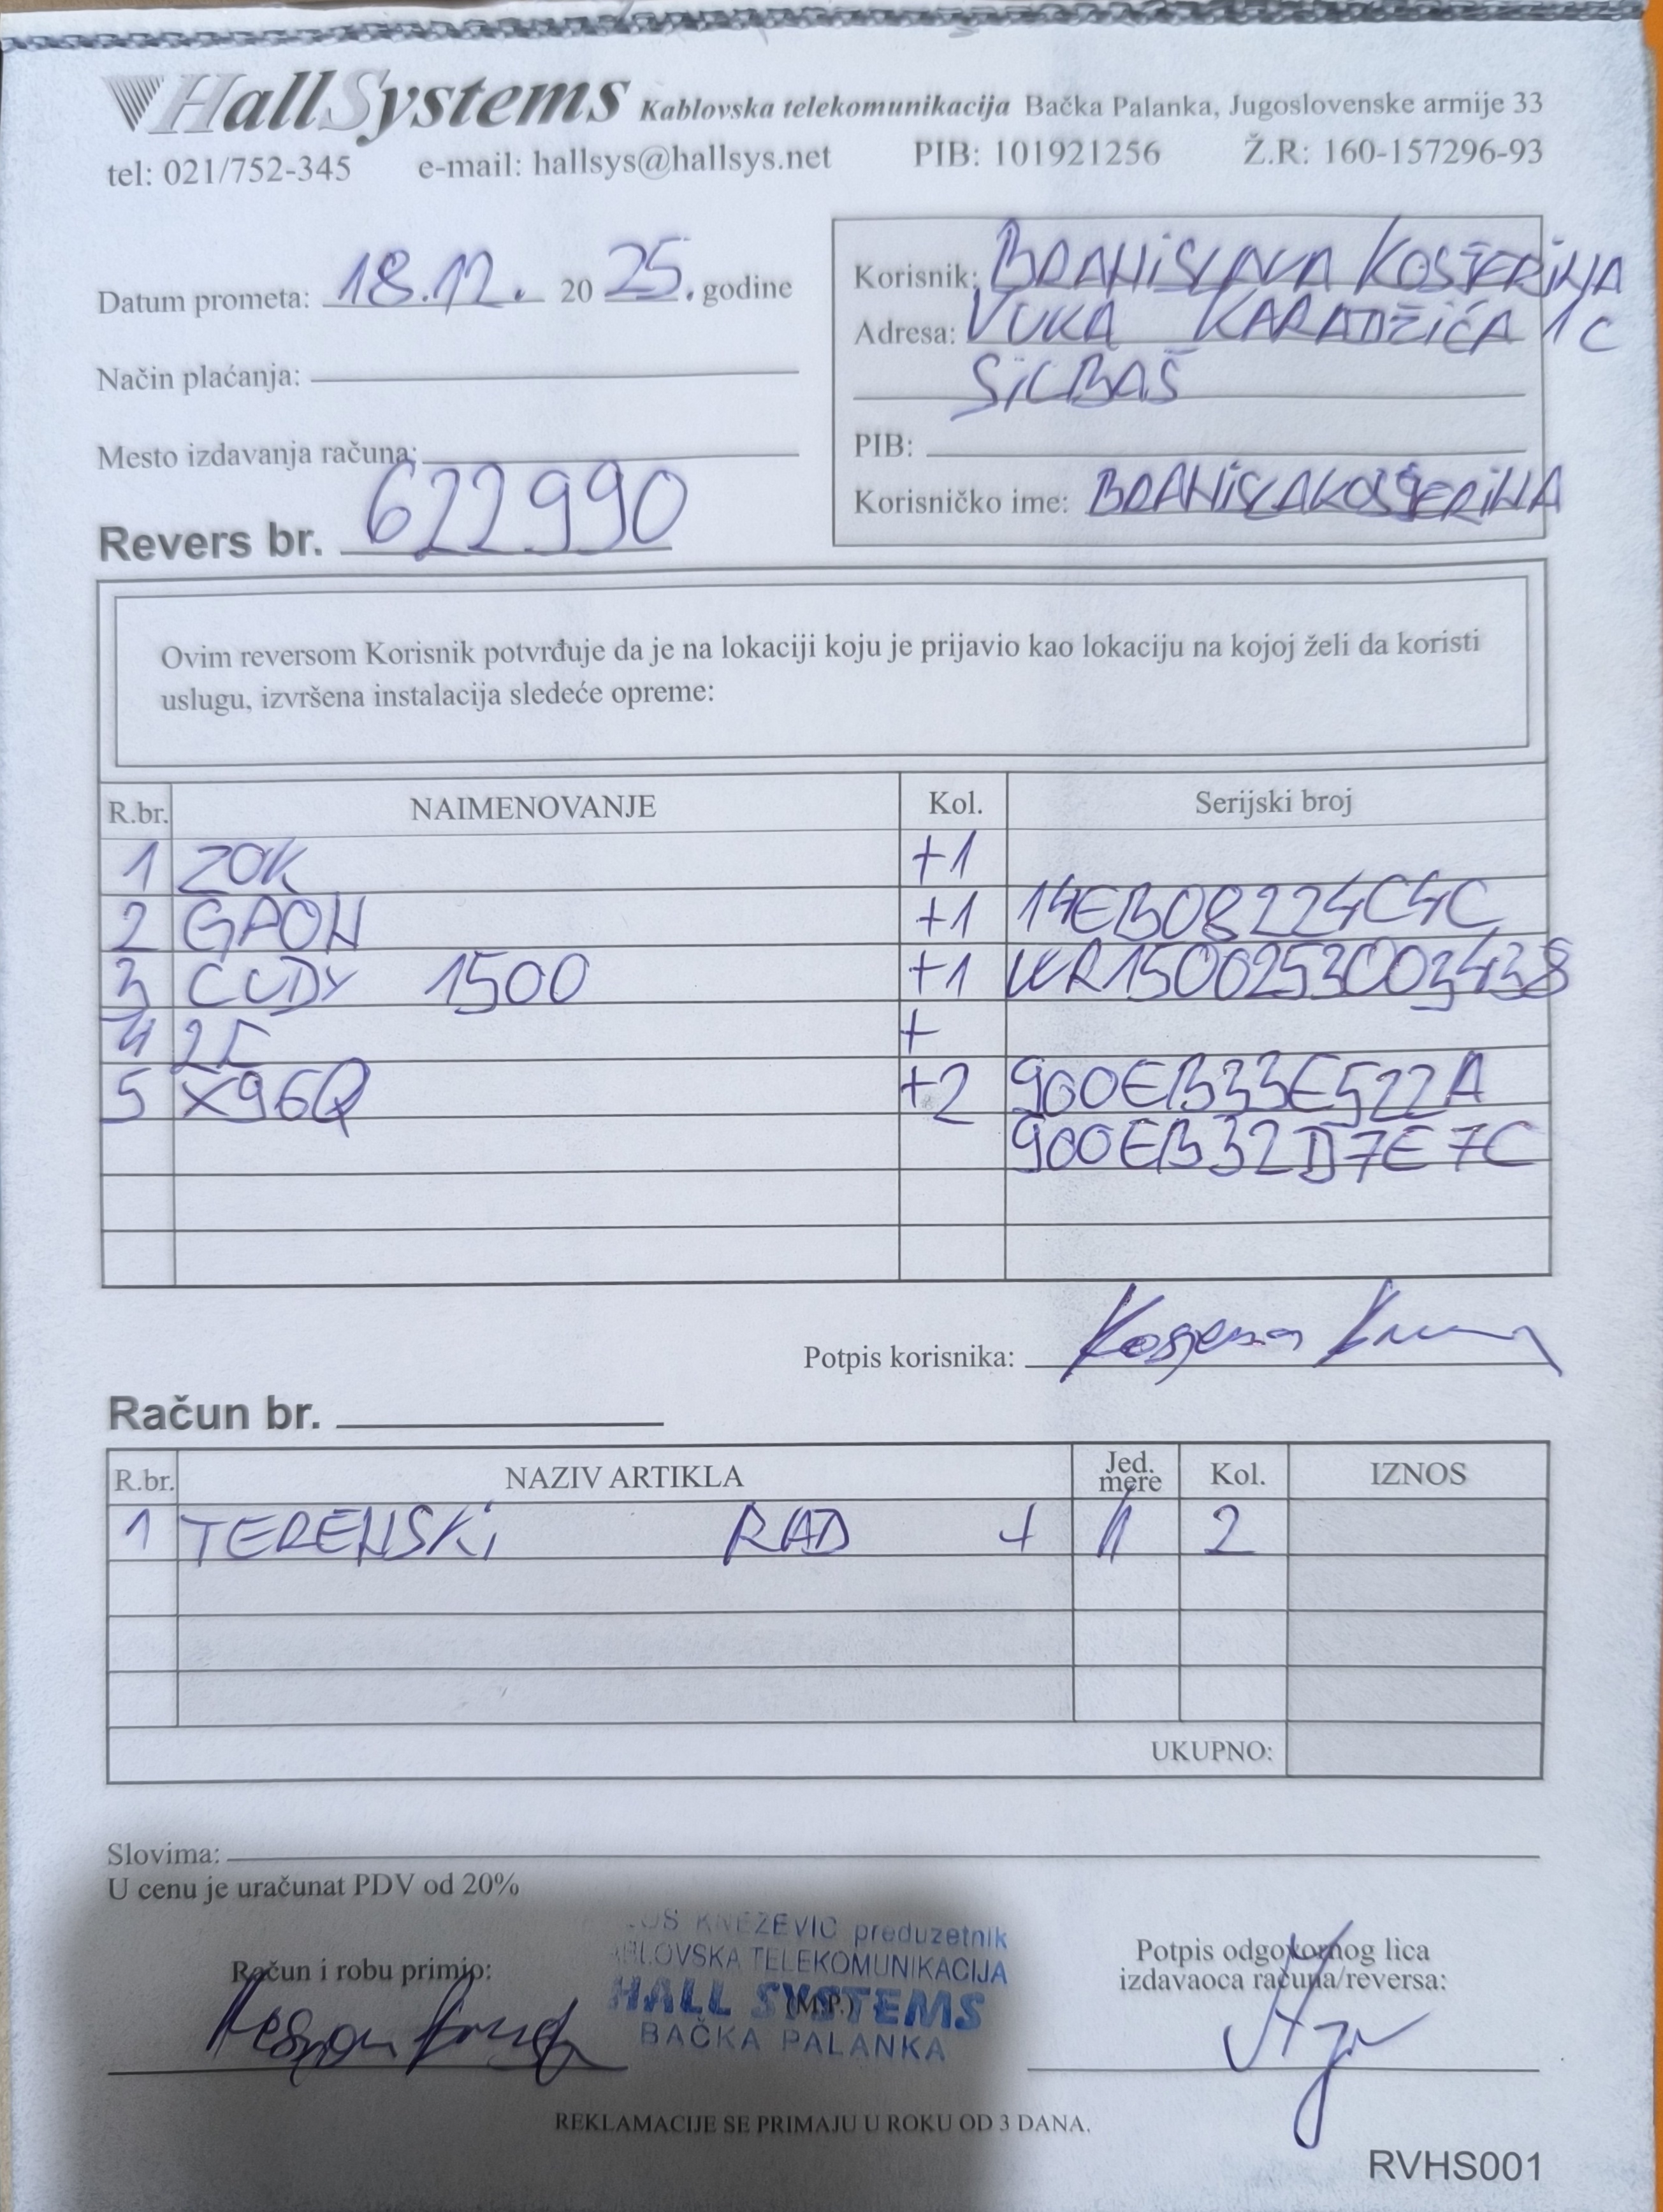 HallSystems Kablovska telekomunikacija Bačka Palanka, Jugoslovenske armije 33
tel: 021/752-345 e-mail: hallsys@hallsys.net PIB: 101921256 Ž.R: 160-157296-93
Datum prometa: 18.12. 20 25. godine
Način plaćanja:
Mesto izdavanja računa:
Revers br. 622990
Korisnik: BRANISLAVA KOSJERINA
Adresa: VUKA KARADŽIĆA 1C
SILBAŠ
PIB:
Korisničko ime: BRANISLAKOSJERINA
Ovim reversom Korisnik potvrđuje da je na lokaciji koju je prijavio kao lokaciju na kojoj želi da koristi
uslugu, izvršena instalacija sledeće opreme:
R.br. NAIMENOVANJE Kol. Serijski broj
1 ZOK +1
2 GPON +1 14EB08224C4C
3 CUDY 1500 +1 WR1500253C003438
4 +
5 X96Q +2 900EB33E522A
900EB32D7E7C
Potpis korisnika:
Račun br.
R.br. NAZIV ARTIKLA Jed. mere Kol. IZNOS
1 TERENSKI RAD + 1 2
UKUPNO:
Slovima:
U cenu je uračunat PDV od 20%
KNEZEVIC preduzetnik
TELEKOMUNIKACIJA
HALL SYSTEMS
BAČKA PALANKA
Račun i robu primio:
(M.P.)
Potpis odgovornog lica
izdavaoca računa/reversa:
REKLAMACIJE SE PRIMAJU U ROKU OD 3 DANA.
RVHS001